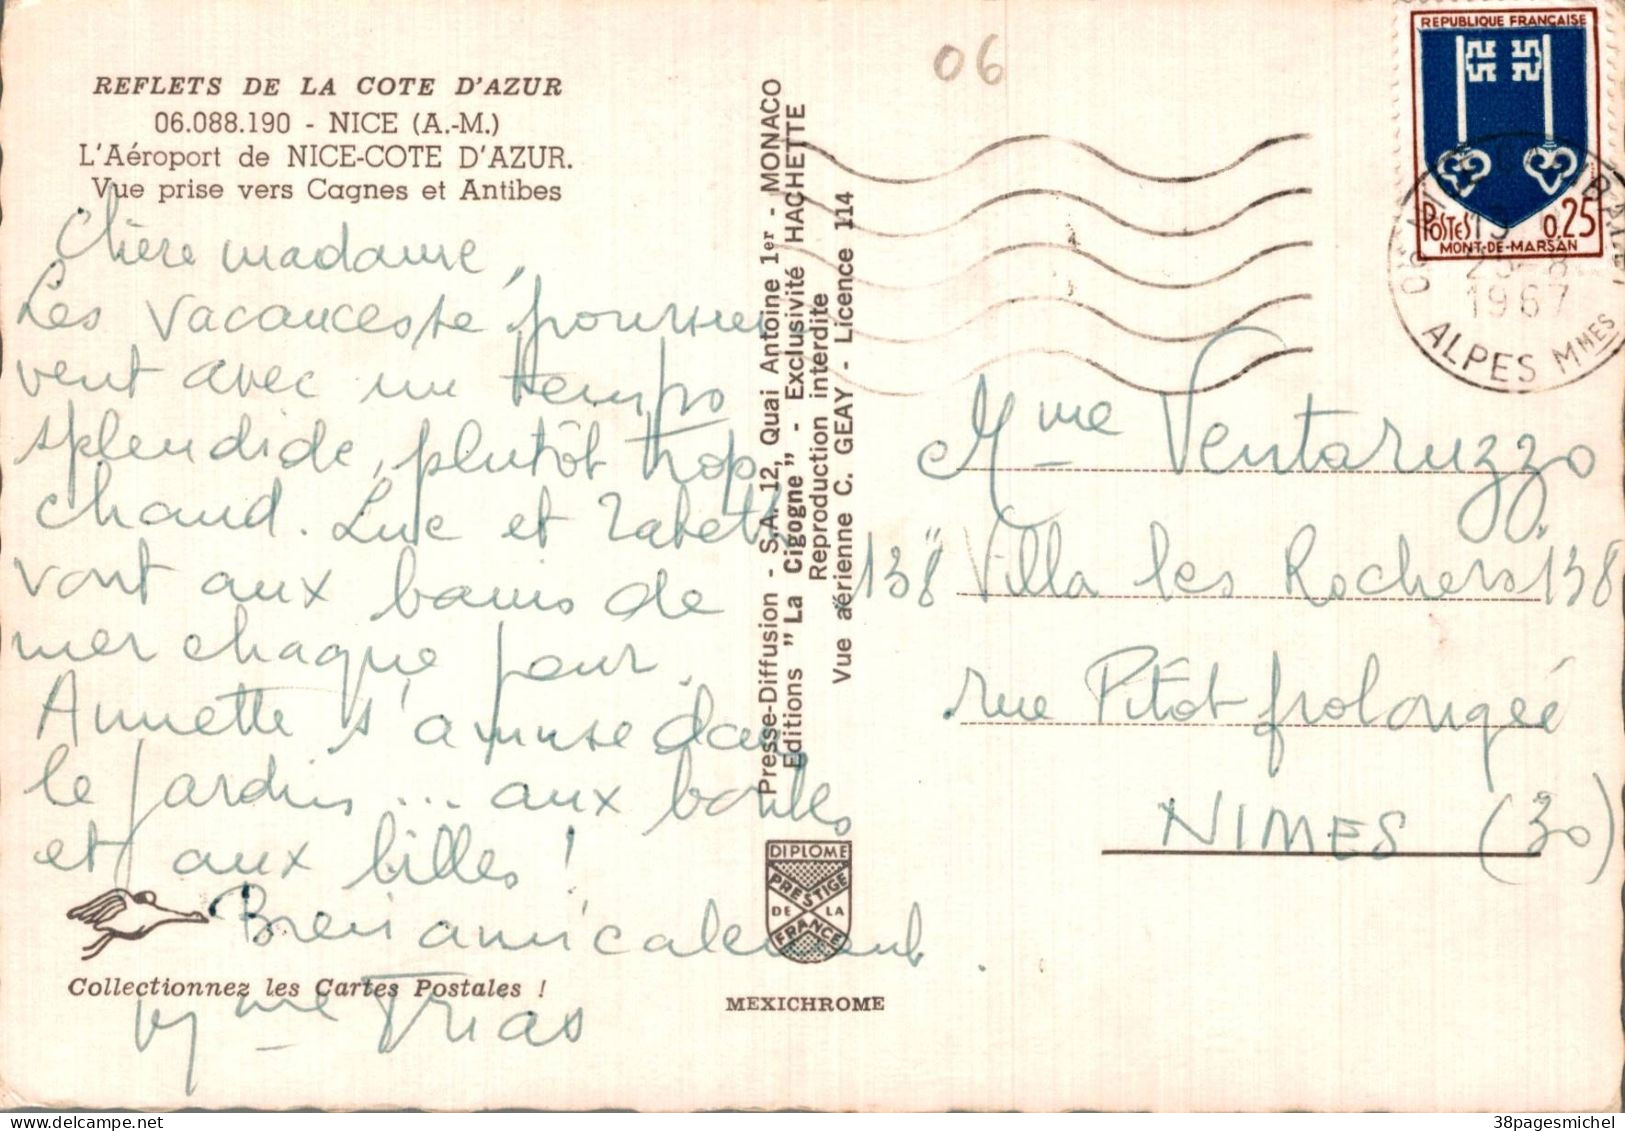 REFLETS DE LA COTE D'AZUR
06.088.190 - NICE (A.-M.)
L'Aéroport de NICE-COTE D'AZUR.
Vue prise vers Cagnes et Antibes
Chère madame,
Les vacances se poursui
vent avec un temps
splendide, plutôt trop
chaud. Luc et
vont aux bains de
mer chaque jour.
Annette s'amuse dans
le jardin... aux boules
et aux billes !
Bien amicalement.
Mme Trias
Collectionnez les Cartes Postales !
Presse-Diffusion - S.A. 12, Quai Antoine 1er - MONACO
Editions "La Cigogne" - Exclusivité HACHETTE
Reproduction interdite
Vue aérienne C. GEAY - Licence 114
DIPLOME
PRESTIGE
DE LA
FRANCE
MEXICHROME
06
REPUBLIQUE FRANÇAISE
POSTES 0.25
MONT-DE-MARSAN
1967
ALPES MMES
Mme Ventaruzzo
138 Villa les Rochers 138
rue Pitôt prolongée
NIMES (30)
38pagesmichel